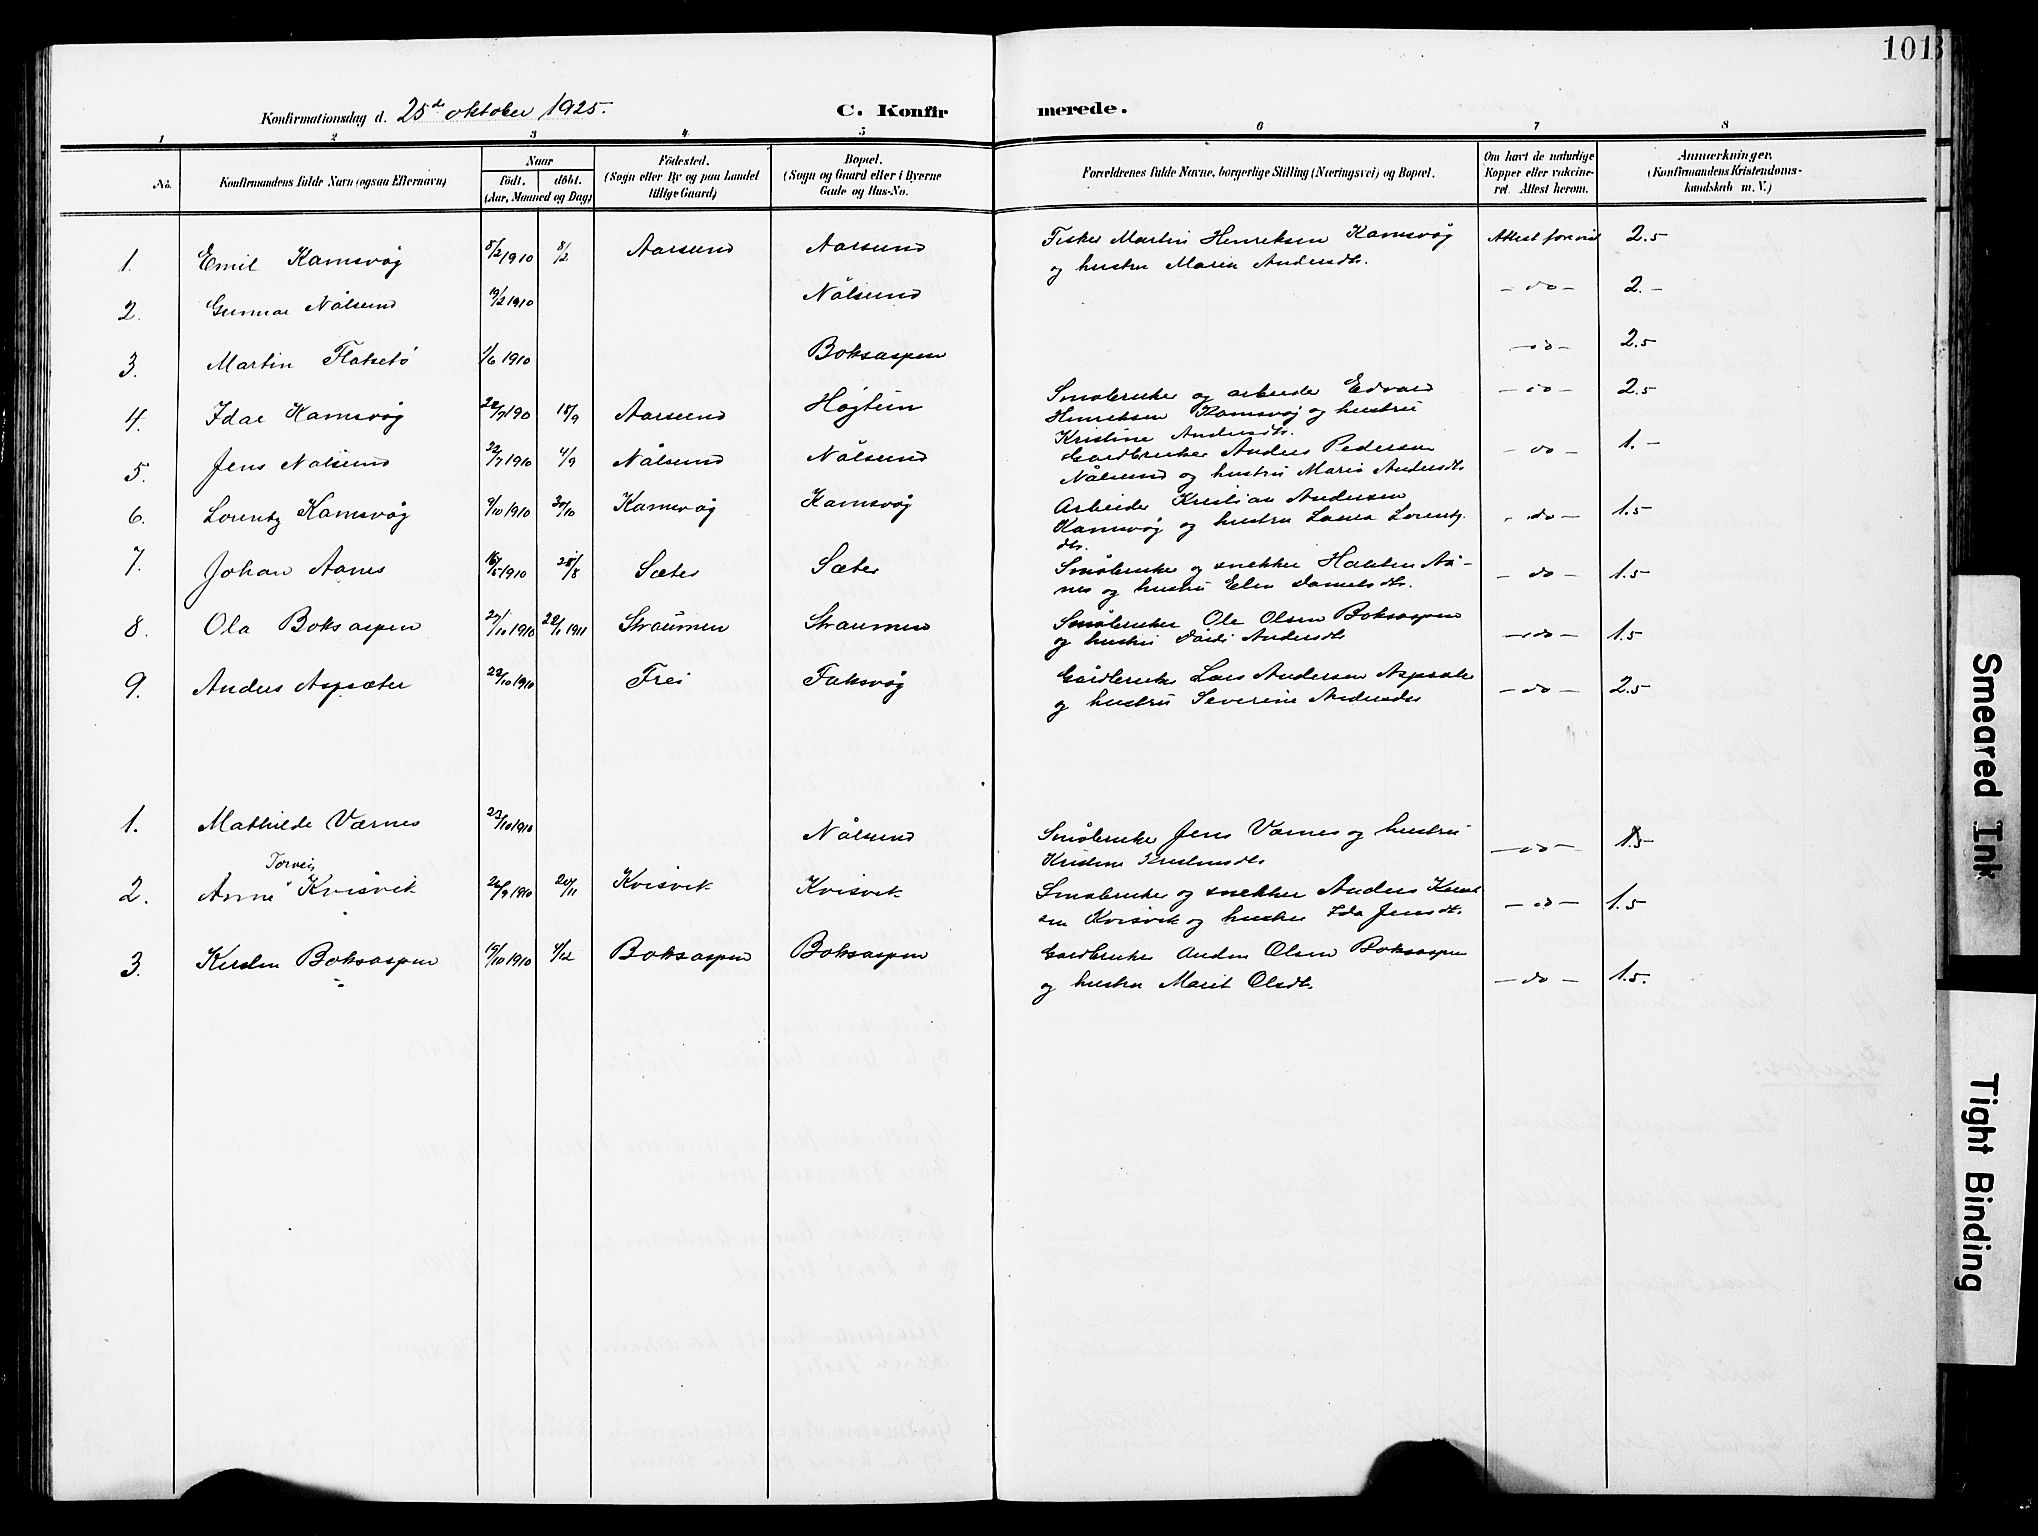 101
Konfirmationsdag d. 25de oktober 1925. C. Konfirmerede.
1 2 3 4 5 6 7 8
No. Konfirmandens fulde Navn (ogsaa Efternavn) Naar Født. døbt. (Aar, Maaned og Dag) Fødested. (Sogn eller By og paa Landet tillige Gaard) Bopæl. (Sogn og Gaard eller i Byerne Gade og Hus-No. Forældrenes fulde Navne, borgerlige Stilling (Næringsvei) og Bopæl. Om havt de naturlige Kopper eller vakcineret. Attest herom. Anmærkninger. (Konfirmandens Kristendomskundskab m. V.)
1. Emil Kamsvåg 5/2 1910 8/2 Aarsund Aarsund Fisker Martin Henriksen Kamsvåg Attest forevist 2.5
og hustru Maria Andersdt.
2. Gunnar Nålsund 19/2 1910 Nålsund - do - 2.-
3. Martin Flatsetø 1/6 1910 Boksaspen - do - 2.5
4. Idar Kamsvåg 22/7 190 18/9 Aarsund Høgtun Småbruker og arbeider Edvard - do - 2.5
Henriksen Kamsvåg og hustru
Kristine Andersdt.
5. Jens Nålsund 22/7 1910 4/9 Nålsund Nålsund Gardbruker Anders Pedersen - do - 1.-
Nålsund og hustru Marie Andersdt.
6. Lorentz Kamsvåg 9/10 1910 30/10 Kamsvåg Kamsvåg Arbeider Kristian Andersen - do - 1.5
Kamsvåg og hustru Laura Lorentz
dt.
7. Johan Aanes 16/5 1910 28/8 Sæter Sæter Småbruker og snekker Halsten Aa- - do - 1.5
nes og hustru Elen Danielsdt.
8. Ola Boksaspen 27/10 1910 22/1 1911 Straumen Straumen Småbruker Ole Olsen Boksaspen - do - 1.5
og hustru Dårdi Andersdt
9. Anders Aspsæter 22/10 1910 Frei Fuksvåg Gardbruker Lars Andersen Aspsæte - do - 2.5
og hustru Severine Andersdt
1. Mathilde Værnes 23/10 1910 Nålsund Småbruker Jens Værnes og hustru - do - 1.5
Kristine Kristensdt
2. Anne Torvei Kvisvik 26/9 1910 20/11 Kvisvik Kvisvik Småbruker og snekker Anders - do - 1.5
sen Kvisvik og hustru Ida Jensdt.
3. Kirsten Boksaspen 15/10 1910 4/12 Boksaspen Boksaspen Gardbruker Anders Olsen Boksaspen
og hustru Marit Olsdt. - do - 1.5.
Smeared Ink
Tight Binding